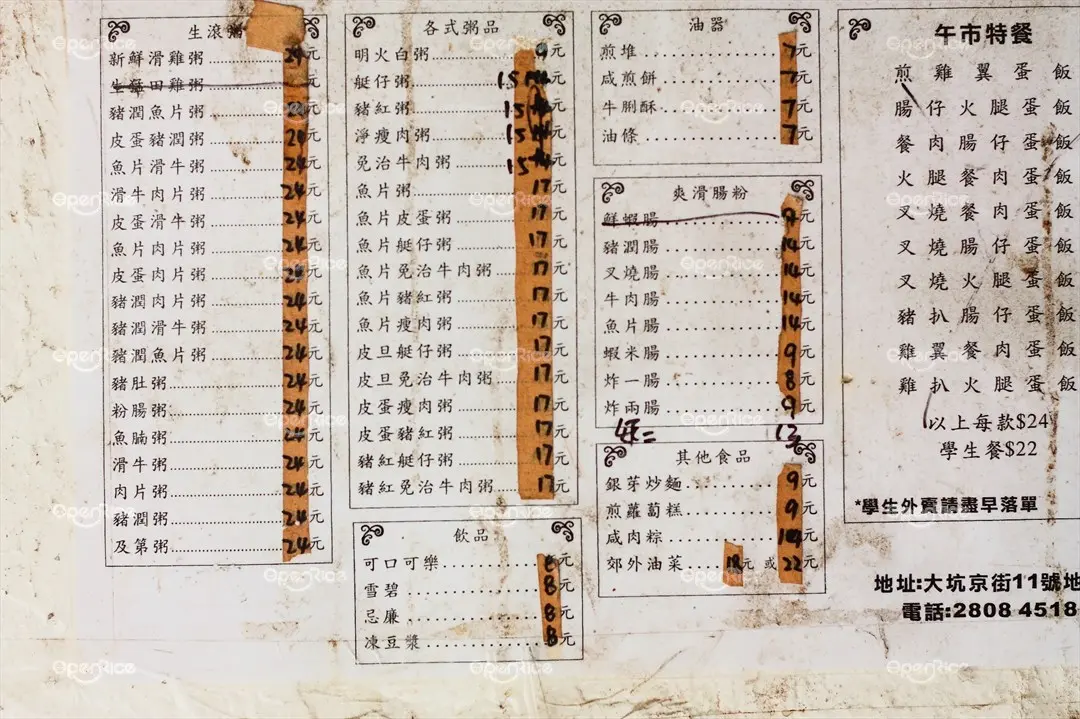 生滾粥
新鮮滑雞粥 24元
田雞粥 元
豬潤魚片粥 元
皮蛋豬潤粥 元
魚片滑牛粥 24元
滑牛肉片粥 24元
皮蛋滑牛粥 24元
魚片肉片粥 24元
皮蛋肉片粥 24元
豬潤肉片粥 24元
豬潤滑牛粥 24元
豬潤魚片粥 24元
豬肚粥 24元
粉腸粥 24元
魚腩粥 24元
滑牛粥 24元
肉片粥 24元
豬潤粥 24元
及第粥 24元
各式粥品
明火白粥 元
艇仔粥 15 元
豬紅粥 15 元
淨瘦肉粥 15 元
免治牛肉粥 15 元
魚片粥 17元
魚片皮蛋粥 17元
魚片艇仔粥 17元
魚片免治牛肉粥 17元
魚片豬紅粥 17元
魚片瘦肉粥 17元
皮旦艇仔粥 17元
皮旦免治牛肉粥 17元
皮蛋瘦肉粥 17元
皮蛋豬紅粥 17元
豬紅艇仔粥 17元
豬紅免治牛肉粥 17元
飲品
可口可樂 8元
雪碧 8元
忌廉 8元
凍豆漿 8元
油器
煎堆 7元
咸煎餅 7元
牛脷酥 7元
油條 7元
爽滑腸粉
鮮蝦腸 9元
豬潤腸 14元
叉燒腸 14元
牛肉腸 14元
魚片腸 14元
蝦米腸 9元
炸一腸 8元
炸兩腸 9元
13
其他食品
銀芽炒麵 9元
煎蘿蔔糕 9元
咸肉粽 元
郊外油菜 元 或 22元
午市特餐
煎雞翼蛋飯
腸仔火腿蛋飯
餐肉腸仔蛋飯
火腿餐肉蛋飯
叉燒餐肉蛋飯
叉燒腸仔蛋飯
叉燒火腿蛋飯
豬扒腸仔蛋飯
雞翼餐肉蛋飯
雞扒火腿蛋飯
以上每款$24
學生餐$22
*學生外賣請盡早落單
地址:大坑京街11號地
電話:2808 4518